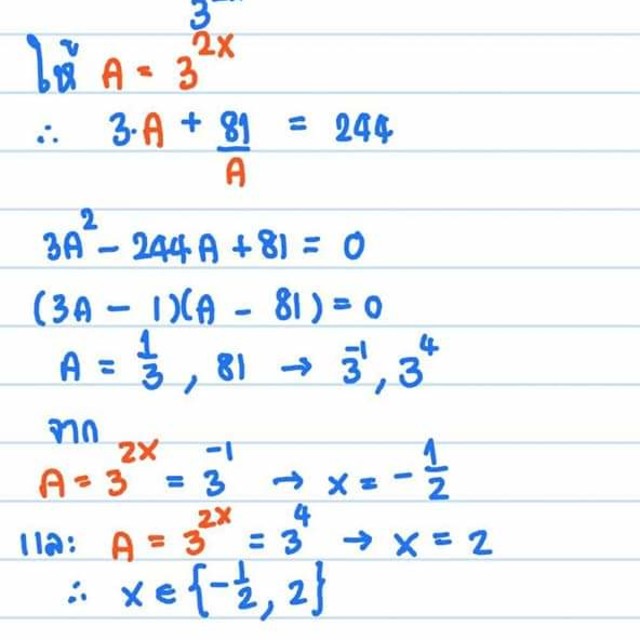 3
ให้ A = 3^{2x}
∴ 3·A + 81/A = 244
3A² - 244A + 81 = 0
(3A - 1)(A - 81) = 0
A = 1/3, 81 → 3⁻¹, 3⁴
จาก
A = 3^{2x} = 3⁻¹ → x = -1/2
และ A = 3^{2x} = 3⁴ → x = 2
∴ x ∈ {-1/2, 2}